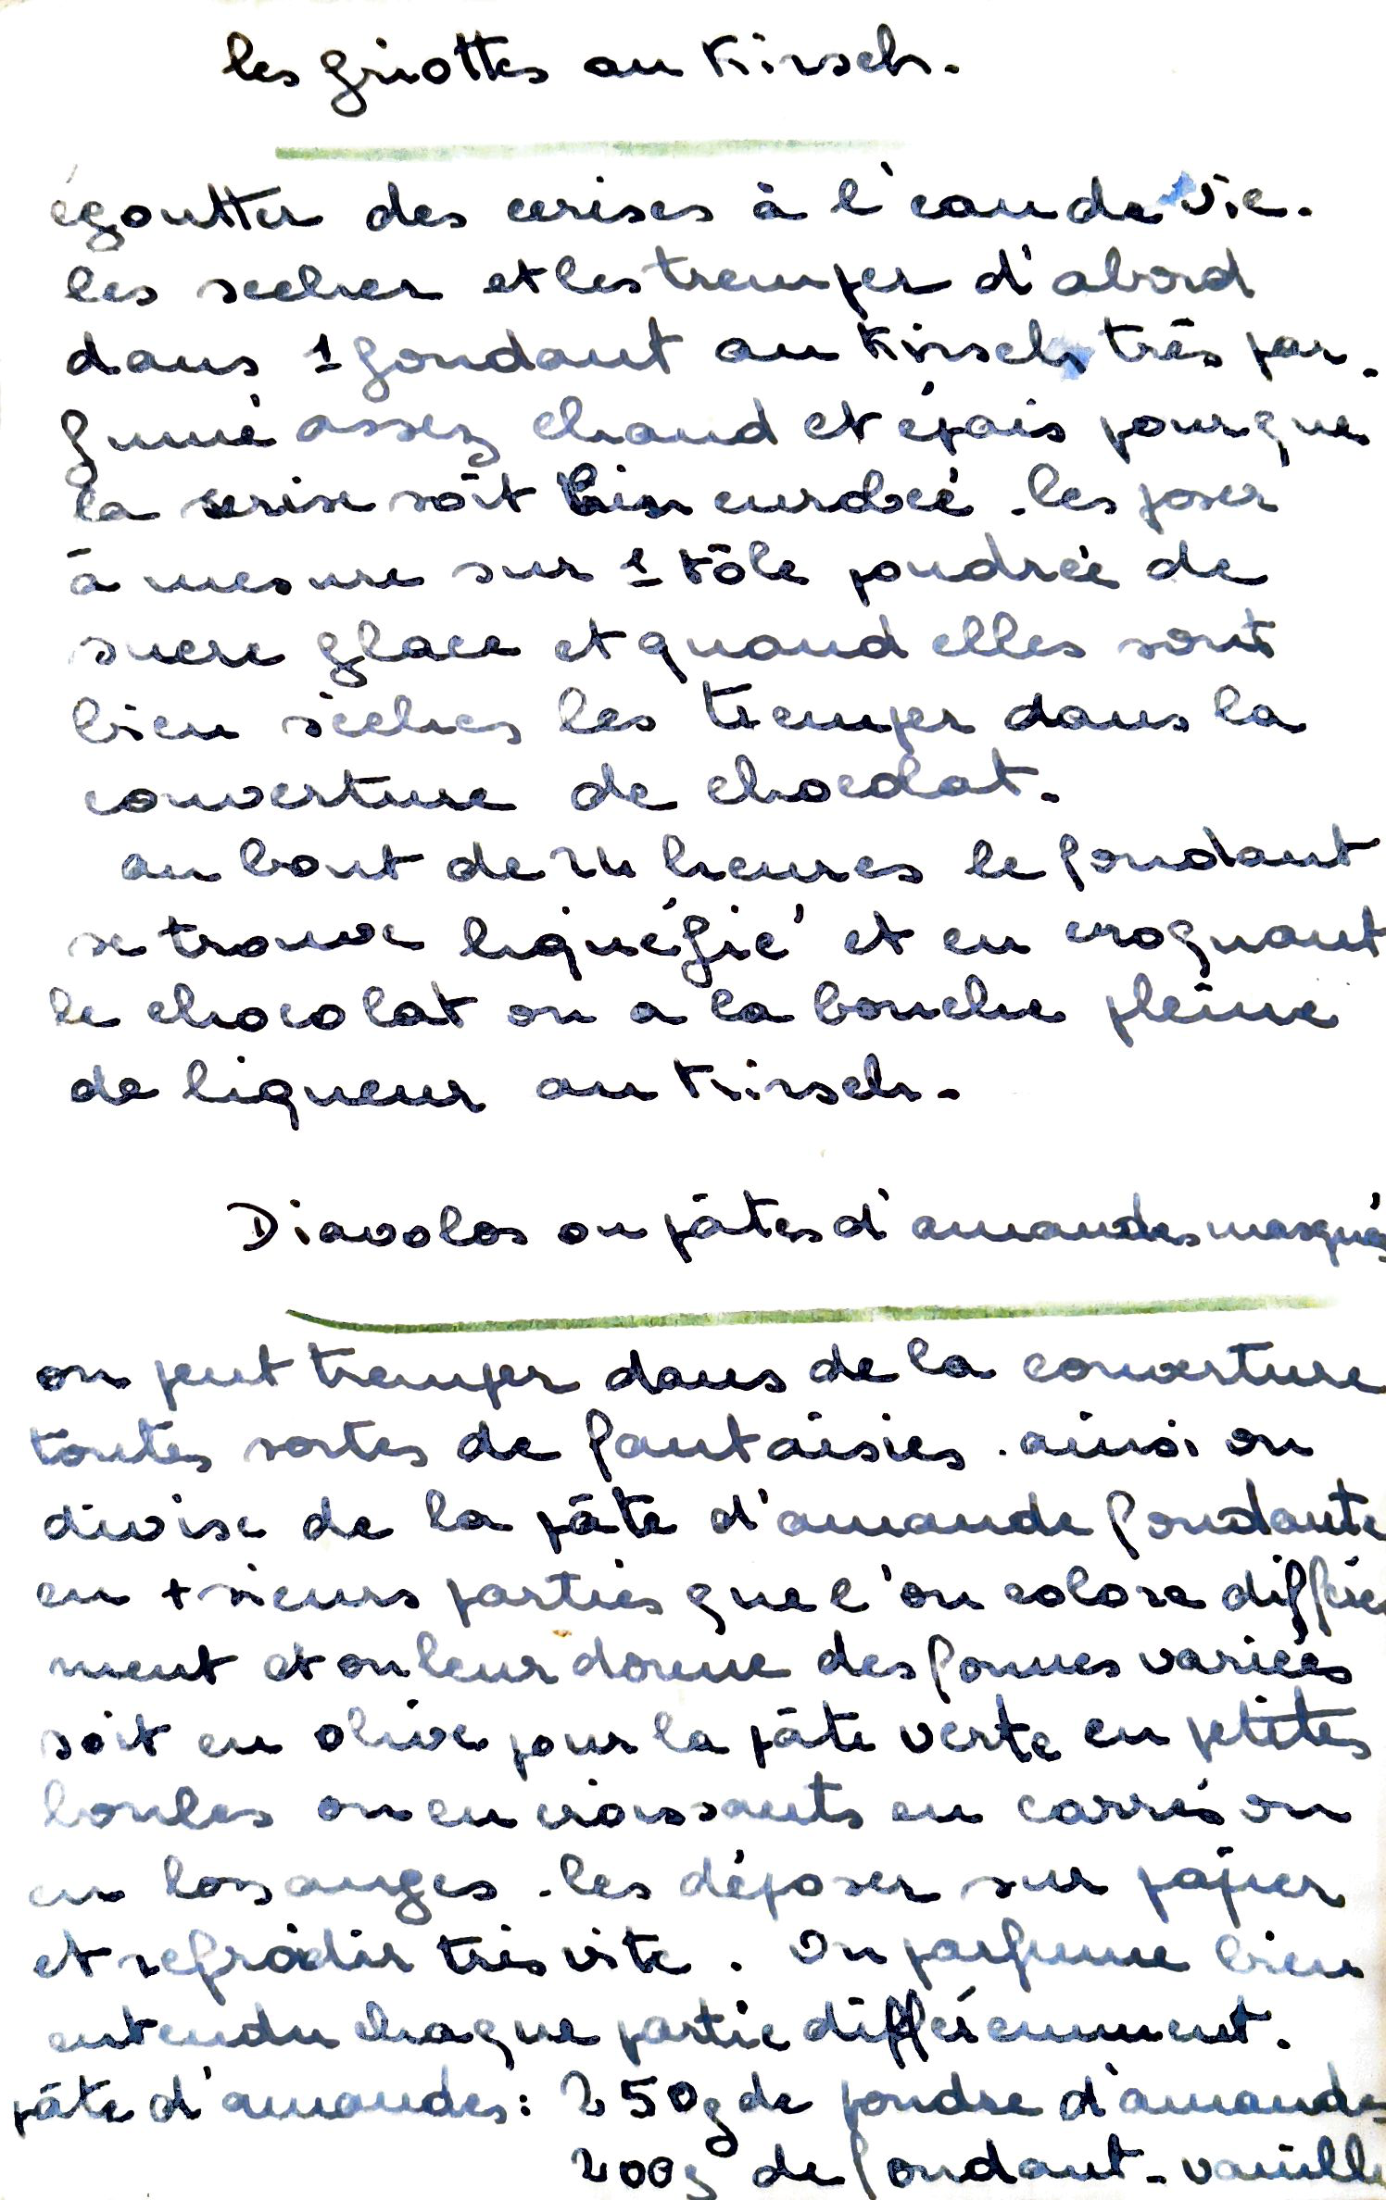 les griottes au Kirsch.
égoutter des cerises à l'eau de vie.
les secher et les tremper d'abord
dans 1 fondant au Kirsch très par-
fumé assez chaud et épais pour que
la cerise soit bien enrobée. les poser
à mesure sur 1 tôle poudrée de
sucre glace et quand elles sont
bien sèches les tremper dans la
couverture de chocolat.
au bout de 24 heures le fondant
se trouve liquéfié et en croquant
le chocolat on a la bouche pleine
de liqueur au Kirsch.
Diavolos ou pâtes d'amandes masqués
on peut tremper dans de la couverture
toutes sortes de fantaisies. ainsi on
divise de la pâte d'amande fondante
en + sieurs parties que l'on colore différe
ment et on leur donne des formes variées
soit en olive pour la pâte verte en petites
boules ou en croissants en carrés ou
en losanges. les déposer sur papier
et refroidir très vite. On parfume bien
entendu chaque partie différemment.
pâte d'amandes: 250g de poudre d'amandes
200g de fondant - vanille